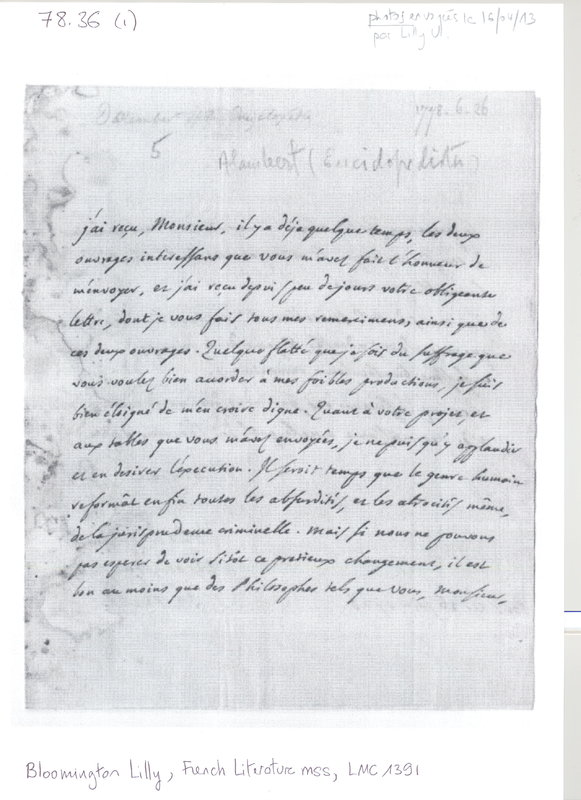 78.36 (1)
photos envoyées le 16/04/13
par Lilly U.
1778.6.26
5
Alambert (Encidopedista)
j'ai reçu, Monsieur, il y a déja quelque temps, les deux
ouvrages interessans que vous m'avez fait l'honneur de
m'envoyer, et j'ai reçu depuis peu de jours votre obligeante
lettre, dont je vous fais tous mes remercimens, ainsi que de
ces deux ouvrages. Quelque flatté que je sois du suffrage que
vous voulez bien accorder à mes foibles productions, je suis
bien éloigné de m'en croire digne. Quant à votre projet, et
aux tables que vous m'avez envoyées, je ne puis qu'y applaudir
et en desirer l'execution. Il seroit temps que le genre humain
reformât enfin toutes les absurdités, et les atrocités même,
de la jurisprudence criminelle. Mais si nous ne pouvons
pas esperer de voir sitôt ce pretieux changement, il est
bon au moins que des Philosophes tels que vous, Monsieur,
Bloomington Lilly, French Literature mss, LMC 1391